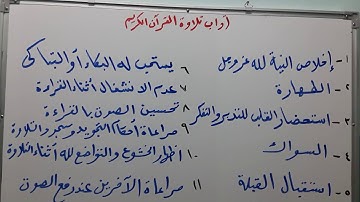 آداب تلاوة القرآن الكريم
١- إخلاص النية لله عز وجل
٢- الطهارة
٣- استحضار القلب للتدبر والتفكر
٤- السواك
٥- استقبال القبلة
٦ يستحب له البكاء أو التباكي
٧ عدم الانشغال أثناء القراءة
٨ تحسين الصوت بالقراءة
٩ مراعاة أحكام التجويد وسجود التلاوة
١٠ اظهار الخشوع والتواضع لله أثناء التلاوة
١١ مراعاة الآخرين عند رفع الصوت